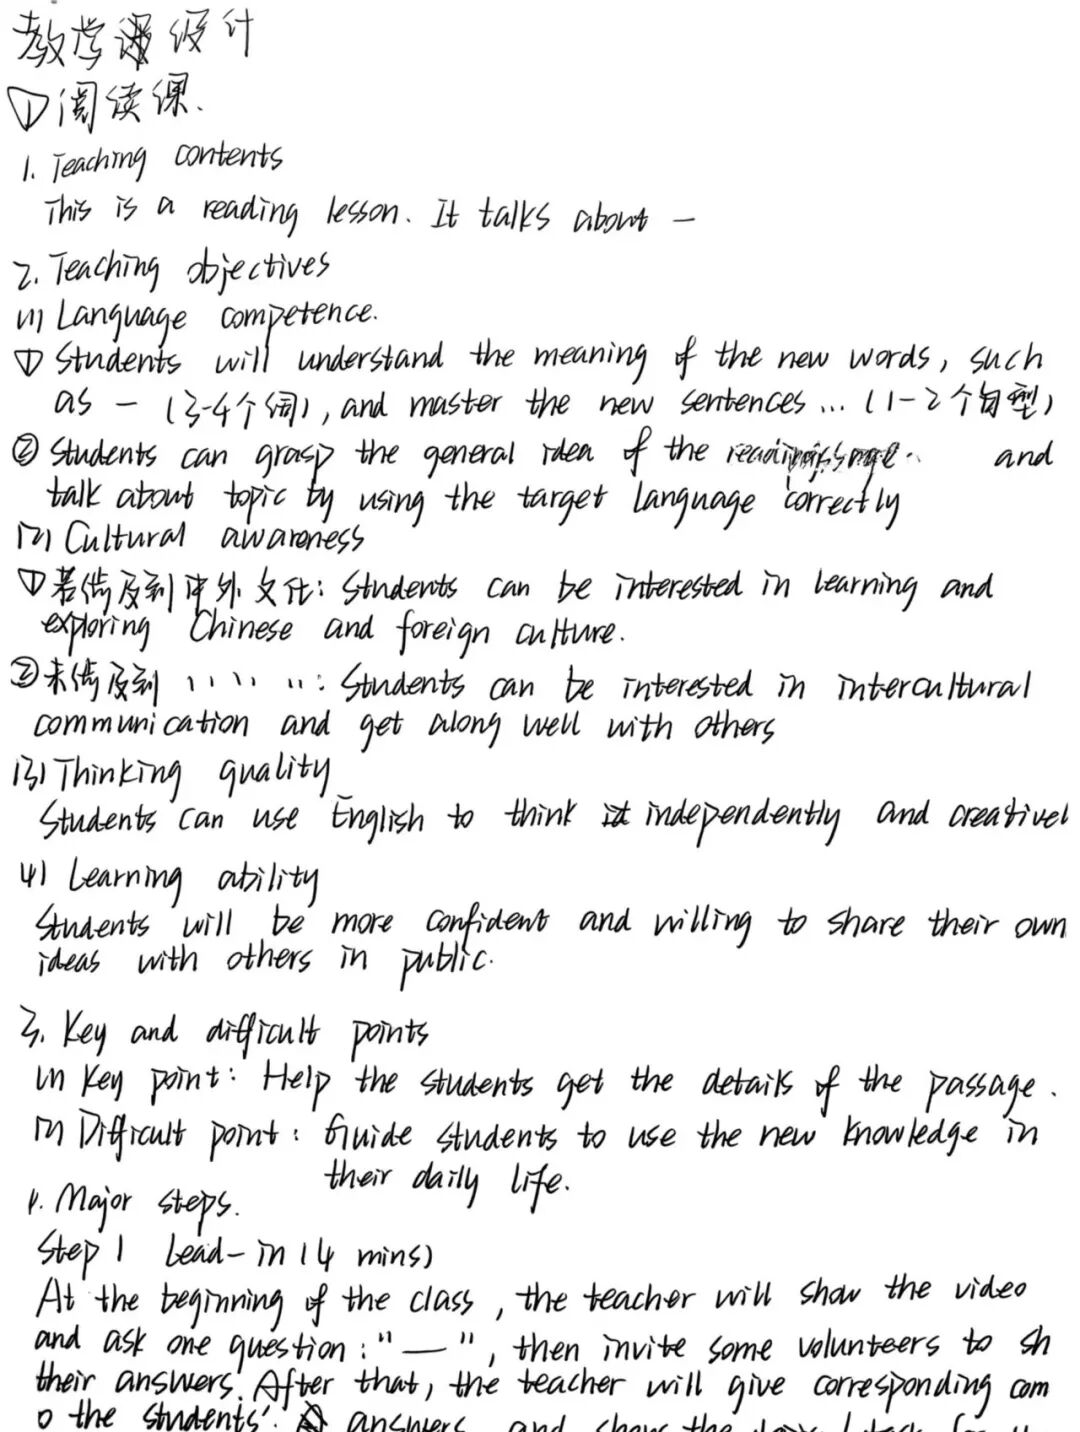 教学设计
①阅读课.
1. Teaching contents
This is a reading lesson. It talks about —
2. Teaching objectives
(1) Language competence.
① Students will understand the meaning of the new words, such
as — (3-4个词), and master the new sentences... (1-2个句型)
② Students can grasp the general idea of the and
talk about topic by using the target language correctly
(2) Cultural awareness
①若涉及到中外文化: Students can be interested in learning and
exploring Chinese and foreign culture.
②未涉及到 〃 〃 〃: Students can be interested in intercultural
communication and get along well with others
(3) Thinking quality
Students can use English to think independently and creativel
4) Learning ability
Students will be more confident and willing to share their own
ideas with others in public.
3. Key and difficult points
(1) Key point: Help the students get the details of the passage.
(2) Difficult point: Guide students to use the new knowledge in
their daily life.
4. Major steps.
Step 1 Lead-in (4 mins)
At the beginning of the class, the teacher will show the video
and ask one question: "—", then invite some volunteers to sh
their answers. After that, the teacher will give corresponding com
o the students' answers, and show the